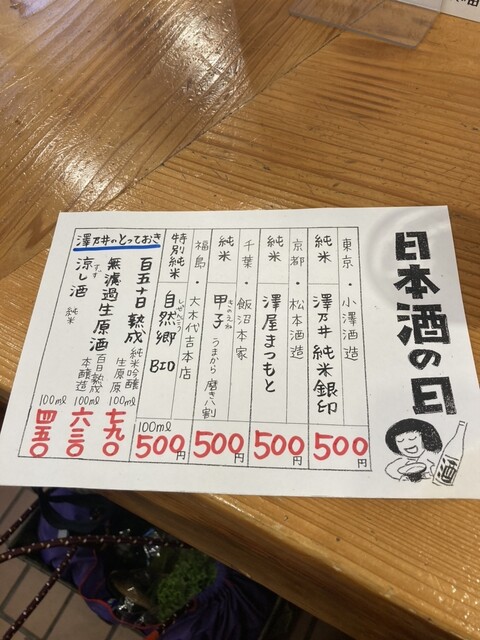 日本酒の日
東京・小澤酒造
純米
澤乃井 純米 銀印
500円
京都・松本酒造
純米
澤屋まつもと
500円
千葉・飯沼本家
純米
きのえね
甲子 うまから 磨き八割
500円
福島・大木代吉本店
特別純米
自然郷 BIO
100ml
500円
澤乃井のとっておき
百五十日熟成
純米吟醸
生原原
100ml
七九〇
無濾過生原酒
百日熟成
本醸造
100ml
六三〇
すず
涼し酒
純米
100ml
四五〇